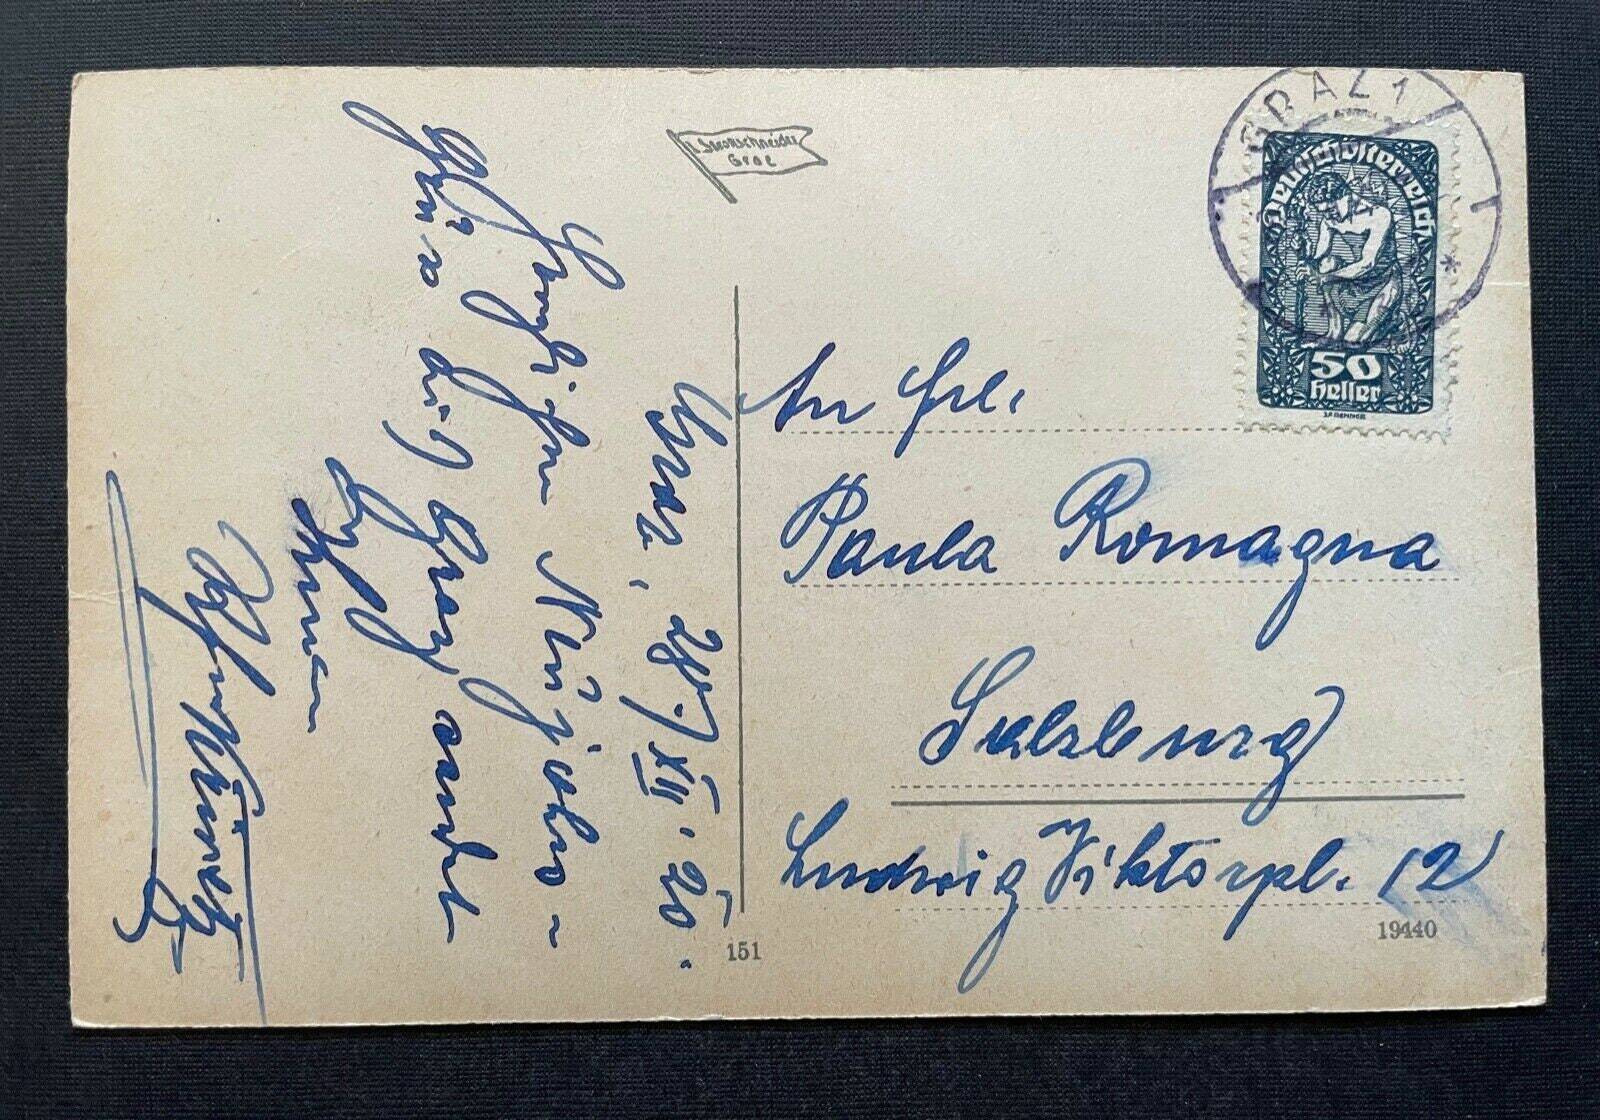 GRAZ 1
Deutschösterreich
50
heller
Stockschneider
Graz
Graz, 28./XII. 20.
Herzlichen Neujahrs-
gruss aus Graz sendet
Ihnen
An Frl.
Paula Romagna
Salzburg
Ludwig Viktorpl. 12
151
19440